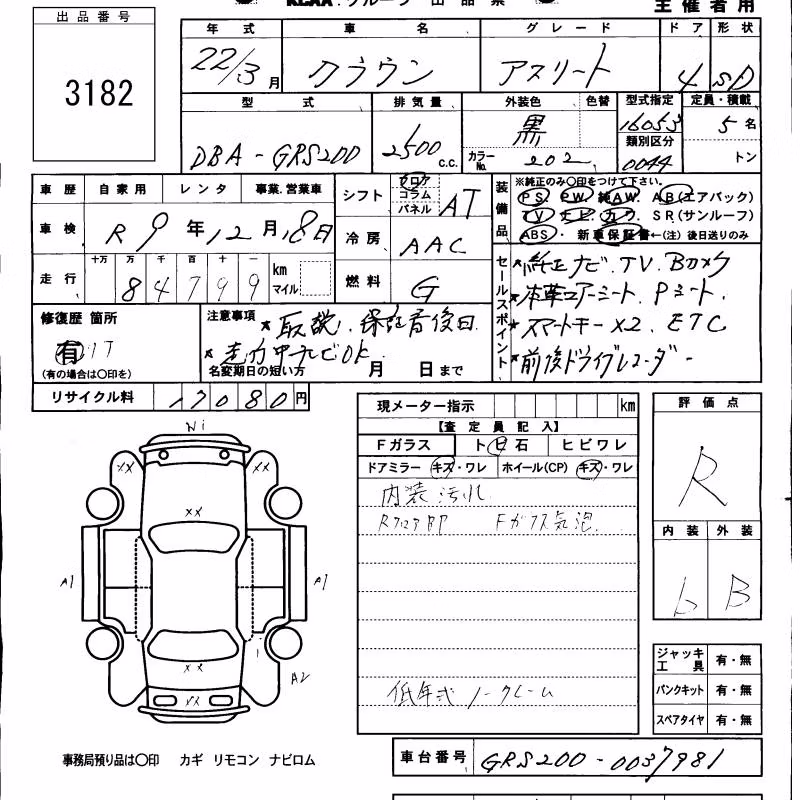 出品番号
3182
KCAA.グループ 出品票
主催者用
年式 車名 グレード ドア 形状
22/3月 クラウン アスリート 4 SD
型式 排気量 外装色 色替 型式指定 定員・積載
DBA-GRS200 2500 c.c. 黒 16053 5名
カラーNo. 202 類別区分 0044 トン
車歴 自家用 レンタ 事業.営業車
車検 R9年12月18日
走行 十万 万 千 百 十 一
84799 km マイル
シフト フロア コラム パネル AT
冷房 AAC
燃料 G
装備品
※純正のみ〇印をつけて下さい。
PS PW 純AW. AB(エアバック)
TV ナビ カワ SR(サンルーフ)
ABS ・ 新車保証書←(注)後日送りのみ
セールスポイント
★純正ナビ.TV.Bカメラ
★本革エアーシート.Pシート.
★スマートキー×2.ETC
★前後ドライブレコーダー
修復歴 箇所
有
(有の場合は〇印を)
注意事項 ★取説.保証書後日
★走行中ナビOK.
名変期日の短い方 月 日まで
リサイクル料 17080円
現メーター指示 km
【査定員記入】
Fガラス トビ石 ヒビワレ
ドアミラー キズ・ワレ ホイール(CP) キズ・ワレ
内装汚れ
Rフロア部 Fガラス気泡.
低年式 ノークレーム
評価点
R
内装 外装
b B
ジャッキ工具 有・無
パンクキット 有・無
スペアタイヤ 有・無
××
××
××
A1
A1
××
A2
××
事務局預り品は〇印 カギ リモコン ナビロム
車台番号 GRS200-0037981